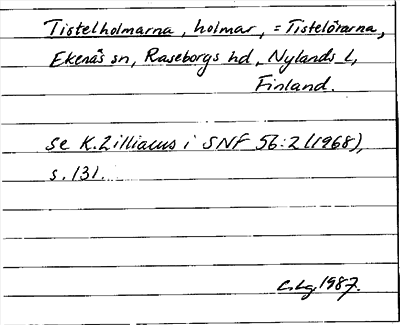 Tistelholmarna, holmar, = Tistelörarna,
Ekenäs sn, Raseborgs hd, Nylands l,
Finland.
se K. Zilliacus i SNF 56:2 (1968),
s. 131.
1987.